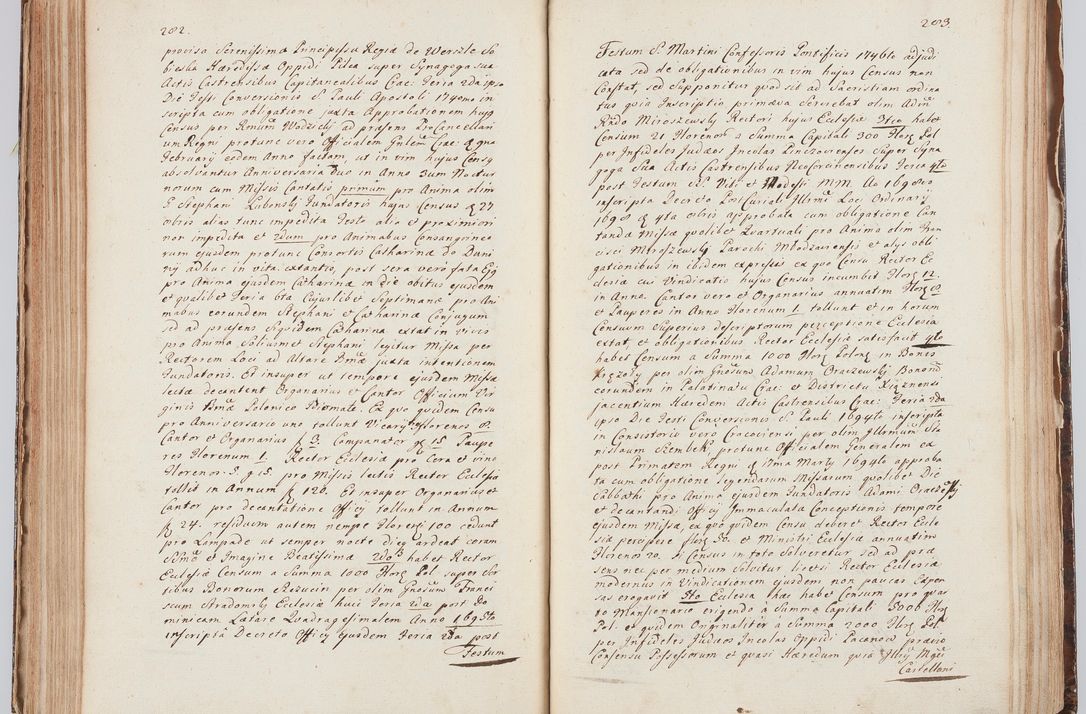 202.
provisa Serenissima Principessa Regia de Wersale So
bieska Hæredissa Oppidi Pilca super Synagoga sua
Actis Castrensibus Capitanealibus Crac: Feria 2da ipso
Die Festi Conversionis S. Pauli Apostoli 1740mo in
scripta cum obligatione juxta Approbationem hujg
Census per Rendum Wodzicki ad præsens ProCancellari
um Regni protunc vero Officialem Gnlem Crac:
February eodem Anno factam, ut in vim hujus Censg
absolvantur Anniversaria duo in Anno cum Noctur
norum cum Missis Cantatis primum pro Anima olim
G Stephani Lubonski Fundatoris hujus Census 27
obris alias tunc impedita Festo alio et proximiori
nor impedita et 2dum pro Animabus Consangvineo
rum ejusdem protunc Consortis Catharina de Duni
ny adhuc in vita extantis, post sera vero fata Ejg
pro Anima ejusdem Catharina in Die obitus ejusdem
et qualibet Feria 6ta Cujuslibet Septimanæ pro Ani
mabus eorundem Stephani et Catharina Conjugum
sed ad præsens Siquidem Catharina extat in vivis
pro Anima Solium et Stephani legitur Missa per
Rectorem Loci ad Altare Bmæ juxta intentionem
Fundatoris. Et insuper ut tempore ejusdem Missæ
lectæ decantent Organarius et Cantor Officium Vir
ginis Bmæ Polonico Idiomate. Ex quo quidem Censu
pro Anniversario uno tollunt Vicary florenos 8.
Cantor et Organarius f 3. Companator gr 15 Paupe
res Florenum 1. Rector Ecclesia pro Cera et vino
Florenos 5 g 15. pro Missis lectis Rector Ecclesia
tollit in Annum f 120. Et insuper Organarius et
Cantor pro decantatione Officij tollunt in Annum
f 24. residuum autem nempe Floreng 100 cedunt
pro Lampade ut semper nocte dieq ardeat coram
Ssmo et Imagine Beatissima 2do habet Rector
Ecclesia Censum a Summa 1000 Flor Pol super Sor
tibus Bonorum Rzeszucin per olim Gnosum Franci
scum Stradomsky Ecclesia huic Feria 2da post Do
minicam Lætare Quadragesimalem Anno 1695to
inscripta Decreto Officij ejusdem Feria 2da post
Festum
203.
Festum S. Martini Confessoris Pontificis 1746to adjudi
cata sed de obligationibus in vim hujus Census non
Constat, sed supponitur quod sit ad Sacristiam ordina
tus quia Inscriptio primæva Serviebat olim Admo
Rndo Miroszewski Rectori hujus Ecclesia 3tio habet
Censum 21 Florenos a Summa Capitali 300 Flor Pol
per Infideles Judæos Incolas Pinczovienses super Syna
goga Sua Actis Castrensibus NeoCorcinensibus Feria 4ta
post Festum SS. Viti et Modesti MM. Ao 1698vo
inscripta Decreto PostCuriali Illrmi Loci Ordinarij
1698 4ta obris approbata cum obligatione Can
tanda Missæ qualibet Quartuali pro Anima olim Fran
cisci Miroszewski Parochi Młodzaviensis et alys obli
gationibus in ibidem expressis ex quo Censu Rector Ec
clesia cui Vindicatio hujus Census incumbit Flor 12.
in Anno. Cantor vero et Organarius annuatim Flor 8
et Pauperes in Anno Florenum 1. tollunt et in horum
Censuum Superius descriptorum perceptione Ecclesia
extat, et obligationibus Rector Ecclesia satisfacit 4to
habet Censum a Summa 1000 Flor Polon in Bonis
Xięzoſy per olim Gnosum Adamum Oraczewski Bonoru
eorundem in Palatinatu Crac: et Districtu Xiąznensi
jacentium Hæredem Actis Castrensibus Crac: Feria 2da
ipso Die Festi Conversionis S. Pauli 1694to inscripta
in Consistorio vero Cracoviensi per olim Illrmum Sta
nislaum Szembek, protunc Officialem Generalem ex
post Primatem Regni 1ma Marty 1694to approba
ta cum obligatione legendarum Missarum qualibet Die
Sabbathi pro Anima ejusdem Fundatoris Adami Oraczewskij
et decantandi Officij Immaculata Conceptionis tempore
ejusdem Missæ, ex quo quidem Censu deberet Rector Eccle
sia percipere flor 50. et Ministri Ecclesiæ annuatim
Florenos 20. si Census in toto Solveretur sed ad præ
sens nec per medium Solvitur licet si Rector Ecclesia
modernus in Vindicationem ejusdem non paucas Expen
sas erogavit 5to Ecclesia hæc habet Censum pro qua
to Mansionario erigendo a Summa Capitali 5006 Flor
Pol. et quidem Originaliter a Summa 2000 Flor Pol
per Infideles Judæos Incolas Oppidi Pacanow prævio
Consensu Possessorum et quasi Hæredum quia Illris Mgci
Castellani